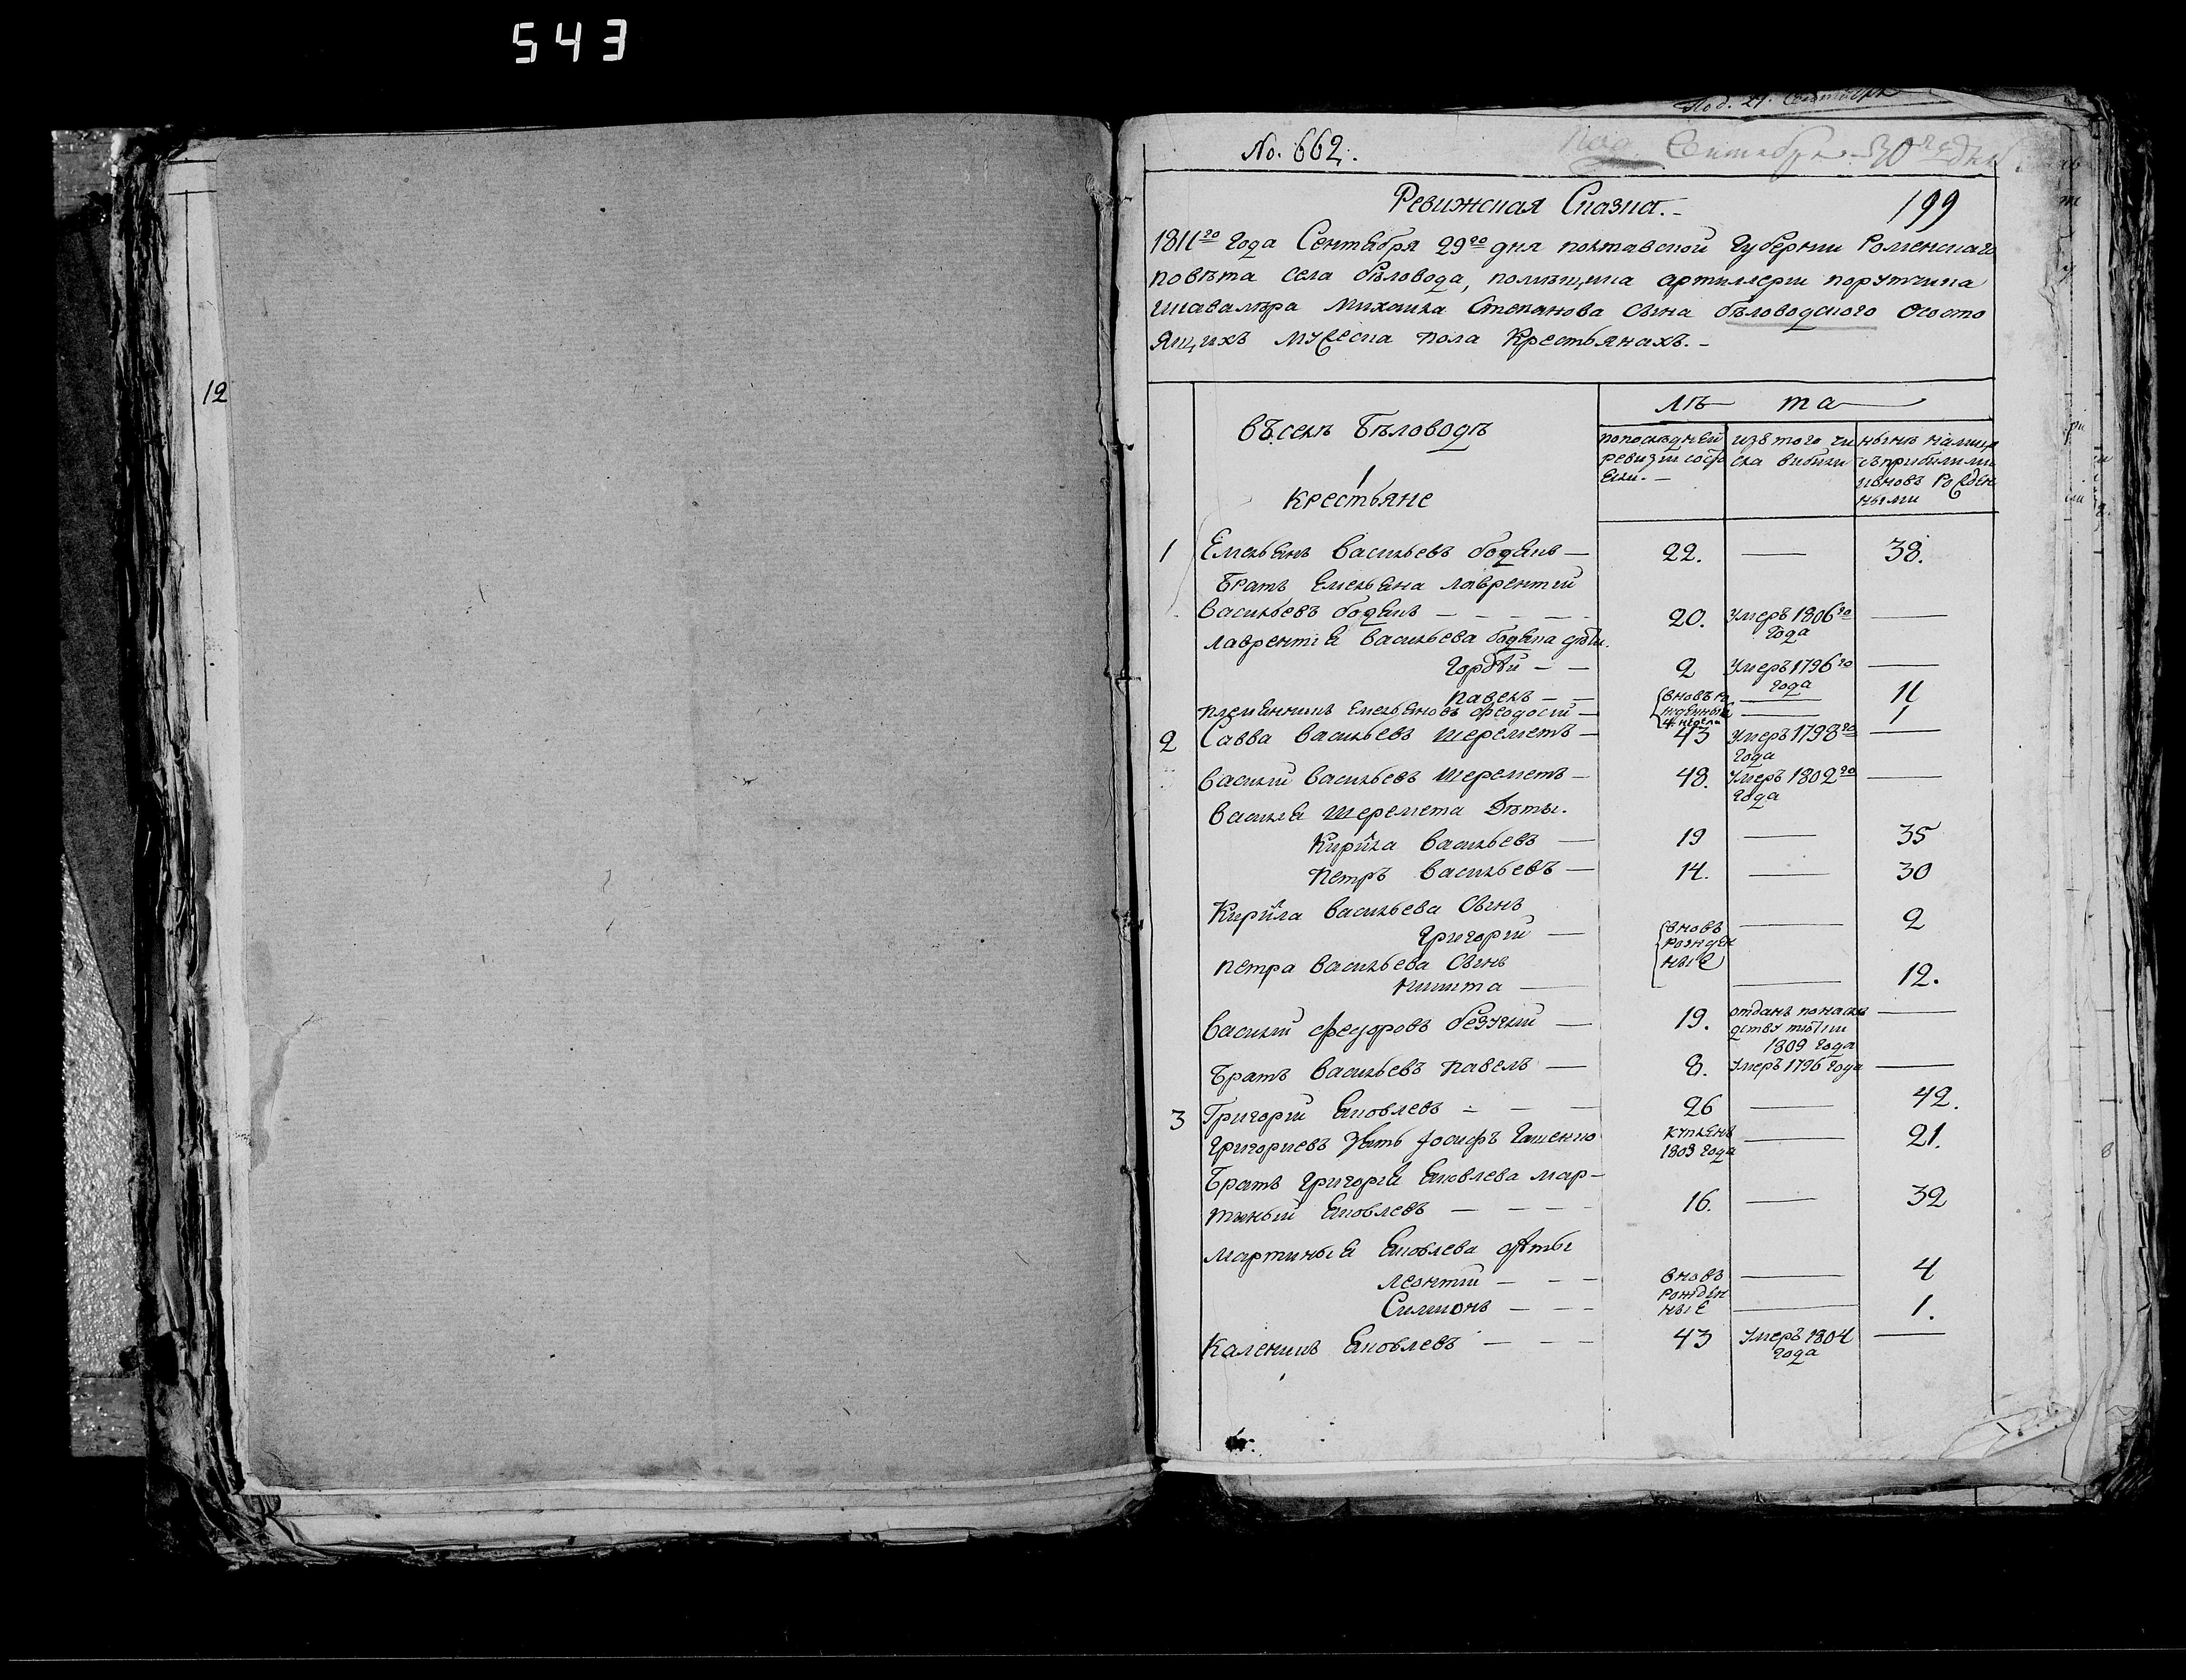 543
12
Под. 21. Сентября
No. 662.
Под. Сентября 30 го дня
Ревижская Сказка.-
199
1811го года Сентября 29го дня полтавской Губернии Роменскаго
повѣта села бѣловода, помѣщика артиллерии порутчика
икавалѣра Михаила Степанова сына бѣловодского ососто
ящихъ мужеска пола Крестьянахъ.-
Лѣ та
въ селѣ Бѣловодѣ
Крестьяне
попослѣдней ревизии состо яли.-
изъ того чи сла вибили
нынѣ налицо съприбилими ивновь рожден ными
1 Емельянъ Васильевъ бодакъ — 22. — 38.
Братъ Емельяна лаврентий
Васильевъ бодакъ - - - 20. Умеръ 1806го года —
лаврентія Васильева бодака дѣти.
Гордѣй - - 2 Умеръ 1796го года —
павелъ - - вновь рожденный — 11
племянникъ Емельяновъ Феодосий - 4 недели — 1
2 Савва Васильевъ Шереметъ - 43 Умеръ 1798го года —
Василий Васильевъ Шереметъ - 48. Умеръ 1802го года —
Василія Шеремета Дѣты.
Кирила Васильевъ — 19 — 35
Петръ Васильевъ — 14. — 30
Кирила Васильева Сынъ
Григорий — вновь рожден ные — 2
петра Васильева Сынъ
Никита — — 12.
Василий Федоровъ — 19. отданъ понаслѣ дству 1809 года —
Братъ Васильевъ павелъ — 8. Умеръ 1796 года —
3 Григорий Яковлевъ - - — 26 — 42.
Григориевъ Зять Иосифъ 1809 года — 21.
Братъ Григорія Яковлева мар-
тыний Яковлевъ - - - 16. — 32
Мартиныя Яковлева дѣты
леонтий - - - вновь рожден ные — 4
Симионъ - - - — 1.
Каленикъ Яковлевъ - - - 43 Умеръ 1804 года —